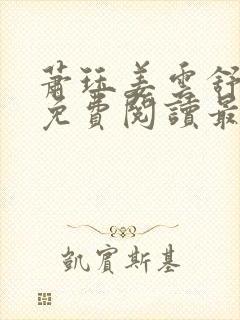 蕭珏姜雲舒
免費閱讀最
凱賓斯基